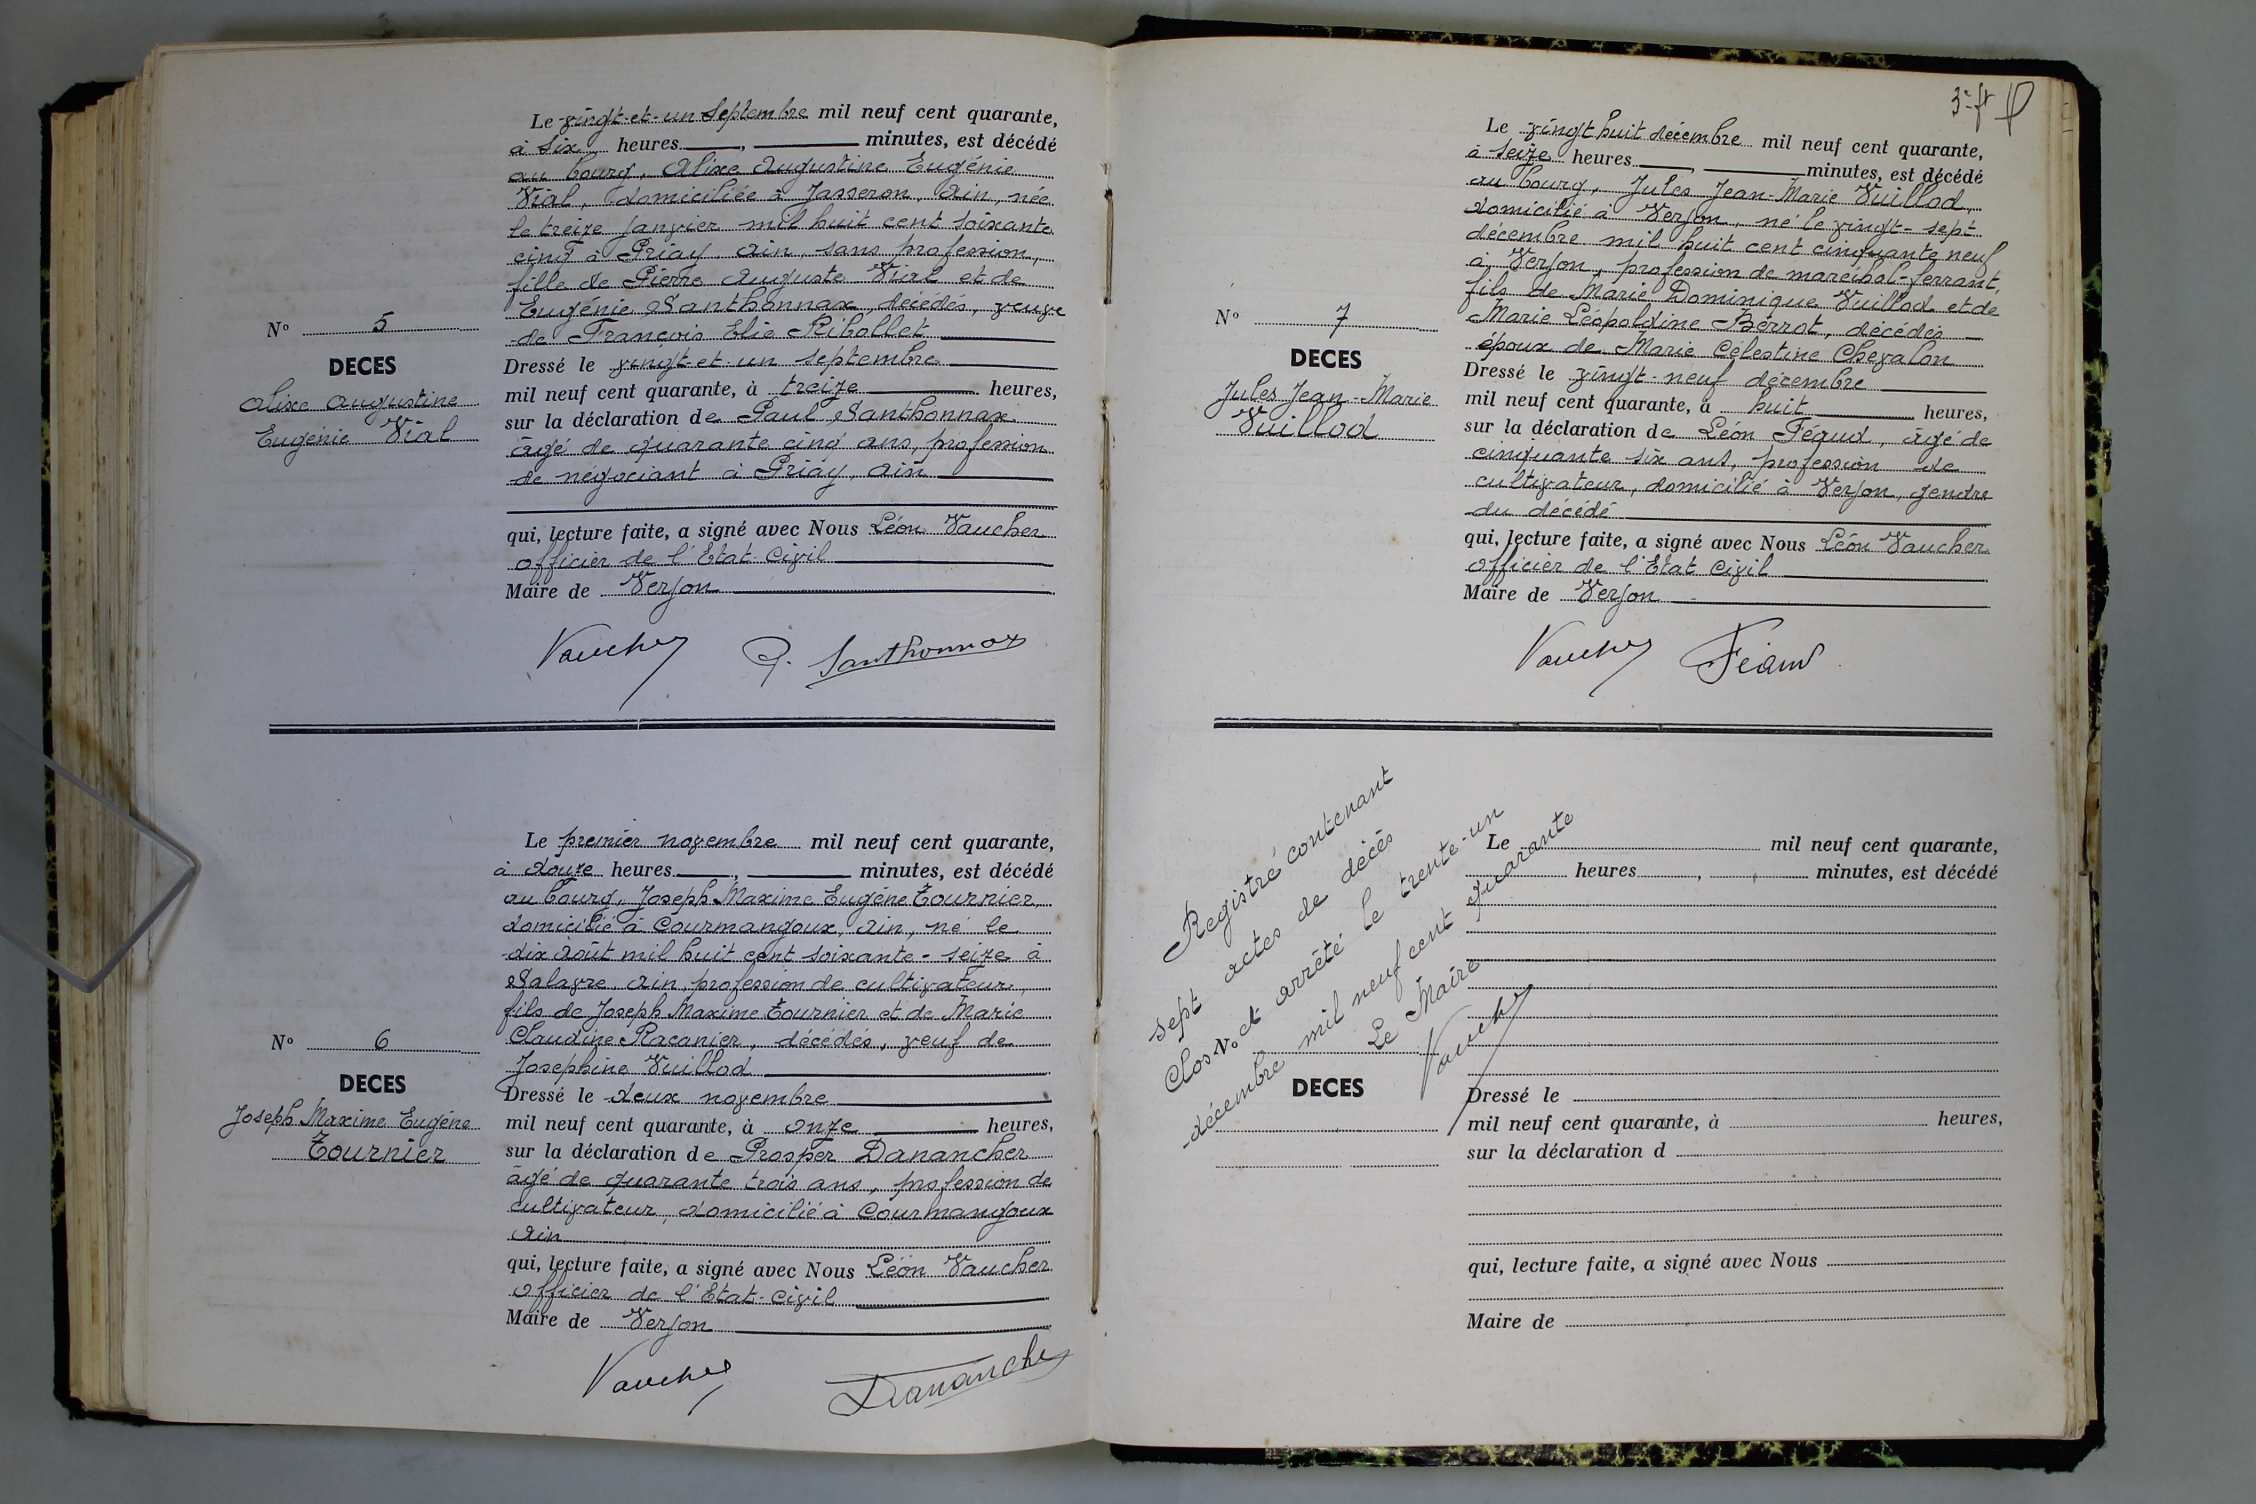 Le vingt-et-un Septembre mil neuf cent quarante,
à six heures, minutes, est décédé
au bourg, Alixe Augustine Eugénie
Vial, domiciliée à Jasseron, Ain, née
le treize janvier mil huit cent soixante
cinq à Priay Ain, sans profession,
fille de Pierre Auguste Vial et de
Eugénie Santhonnax, décédés, veuve
de François Elie Ribollet
N° 5
DECES
Alixe Augustine
Eugénie Vial
Dressé le vingt-et-un septembre
mil neuf cent quarante, à treize heures,
sur la déclaration de Paul Santhonnax
âgé de quarante cinq ans, profession
de négociant à Priay, Ain
qui, lecture faite, a signé avec Nous Léon Vaucher
officier de l'Etat-Civil
Maire de Verjon
Vaucher P. Santhonnax
Le premier novembre mil neuf cent quarante,
à douze heures, minutes, est décédé
au bourg, Joseph Maxime Eugène Tournier
domicilié à Courmangoux, Ain, né le
dix août mil huit cent soixante-seize à
Salavre Ain, profession de cultivateur,
fils de Joseph Maxime Tournier et de Marie
Claudine Racanier, décédés, veuf de
Josephine Vuillod
N° 6
DECES
Joseph Maxime Eugène
Tournier
Dressé le deux novembre
mil neuf cent quarante, à onze heures,
sur la déclaration de Prosper Danancher
âgé de quarante trois ans, profession de
cultivateur, domicilié à Courmangoux
Ain
qui, lecture faite, a signé avec Nous Léon Vaucher
officier de l'Etat-Civil
Maire de Verjon
Vaucher Dananche
Le vingt huit décembre mil neuf cent quarante,
à seize heures, minutes, est décédé
au bourg, Jules Jean-Marie Vuillod,
domicilié à Verjon, né le vingt-sept
décembre mil huit cent cinquante neuf
à Verjon, profession de maréchal-ferrant,
fils de Marie Dominique Vuillod et de
Marie Léopoldine Berrot, décédés
époux de Marie Célestine Chevalon
N° 7
DECES
Jules Jean-Marie
Vuillod
Dressé le vingt-neuf décembre
mil neuf cent quarante, à huit heures,
sur la déclaration de Léon Féaud, âgé de
cinquante six ans, profession de
cultivateur, domicilié à Verjon, gendre
du décédé
qui, lecture faite, a signé avec Nous Léon Vaucher
officier de l'Etat Civil
Maire de Verjon
Vaucher Féaud
Registre contenant
sept actes de décès
Clos et arrêté le trente-un
décembre mil neuf cent quarante
Le Maire
Vaucher
N°
DECES
Le mil neuf cent quarante,
heures, minutes, est décédé
Dressé le
mil neuf cent quarante, à heures,
sur la déclaration d
qui, lecture faite, a signé avec Nous
Maire de